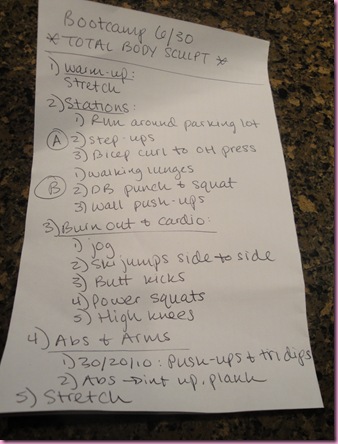 Bootcamp 6/30
* TOTAL BODY SCULPT *
1) Warm-up:
Stretch
2) Stations:
1) Run around parking lot
A 2) Step-ups
3) Bicep curl to OH press
1) walking lunges
B 2) DB punch & squat
3) Wall push-ups
3) Burn out & cardio:
1) jog
2) Ski jumps side to side
3) Butt kicks
4) Power squats
5) High knees
4) Abs & Arms
1) 30/20/10: Push-ups & tri dips
2) Abs - up, plank
5) Stretch